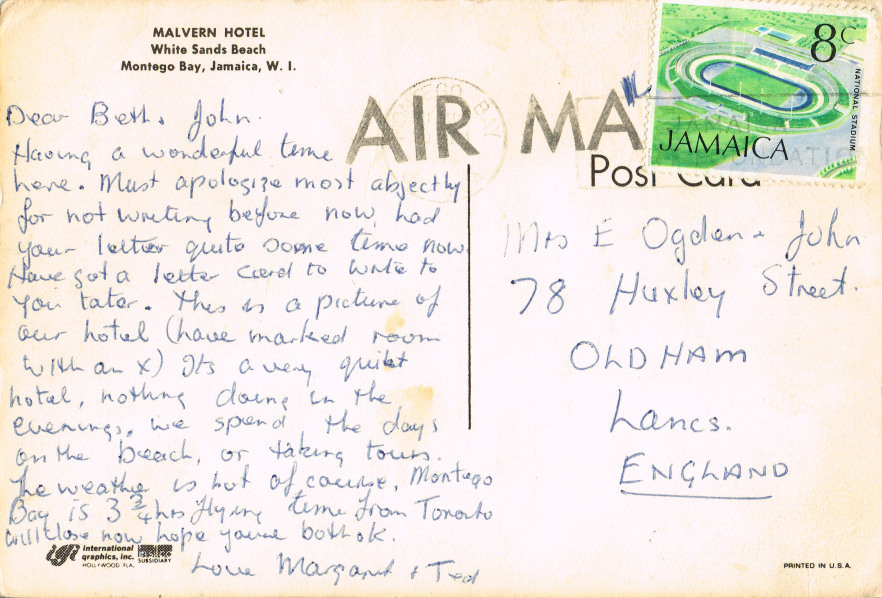 MALVERN HOTEL
White Sands Beach
Montego Bay, Jamaica, W. I.
AIR MA
Post Card
8c
NATIONAL STADIUM
JAMAICA
MONTEGO BAY
Dear Beth & John.
Having a wonderful time
here. Must apologize most abjectly
for not writing before now, had
your letter quite some time now.
Have got a letter card to write to
you later. This is a picture of
our hotel (have marked room
with an x) Its a very quiet
hotel, nothing doing in the
evenings, we spend the days
on the beach, or taking tours.
The weather is hot of course, Montego
Bay is 3 3/4 hrs flying time from Toronto
will close now hope youre both ok.
Love Margaret & Ted
Mrs E Ogden & John
78 Huxley Street.
OLDHAM
Lancs.
ENGLAND
igi international
graphics, inc.
HOLLYWOOD FLA.
SUBSIDIARY
PRINTED IN U.S.A.